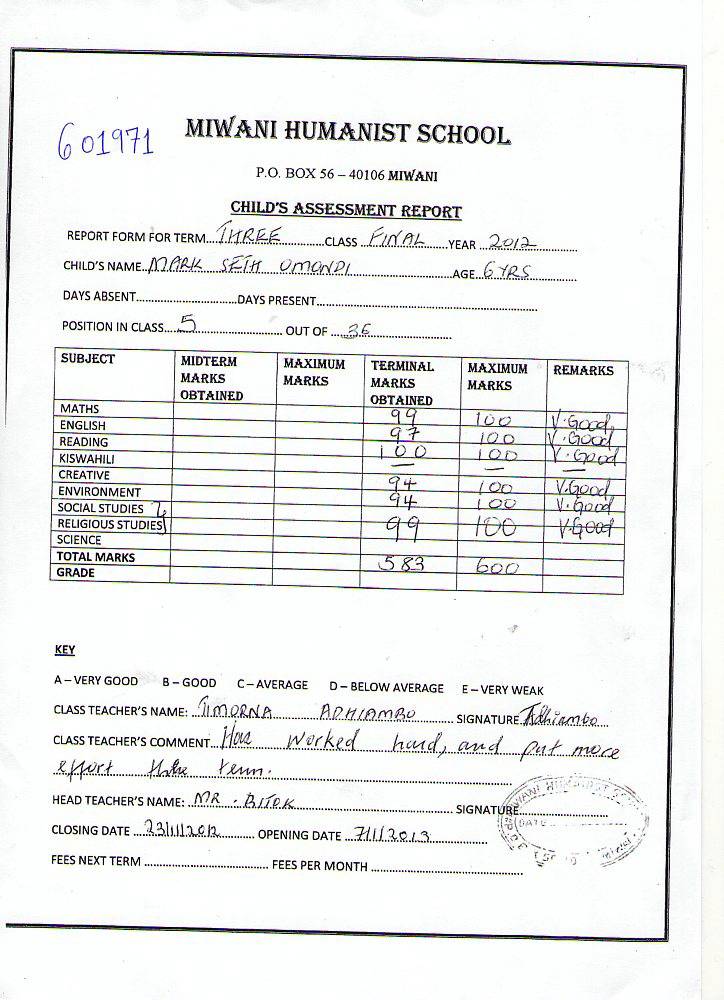 601971
MIWANI HUMANIST SCHOOL
P.O. BOX 56 – 40106 MIWANI
CHILD'S ASSESSMENT REPORT
REPORT FORM FOR TERM...THREE.......CLASS...FINAL....YEAR...2012.........
CHILD'S NAME..MARK SETH OMONDI..............AGE..6YRS.........
DAYS ABSENT.......................DAYS PRESENT.......................
POSITION IN CLASS....5................. OUT OF ....36.................
SUBJECT MIDTERM MARKS OBTAINED MAXIMUM MARKS TERMINAL MARKS OBTAINED MAXIMUM MARKS REMARKS
MATHS 99 100 V.Good
ENGLISH 97 100 V.Good
READING 100 100 V.Good
KISWAHILI — — —
CREATIVE 94 100 V.Good
ENVIRONMENT 94 100 V.Good
SOCIAL STUDIES
RELIGIOUS STUDIES 99 100 V.Good
SCIENCE
TOTAL MARKS 583 600
GRADE
KEY
A – VERY GOOD B – GOOD C – AVERAGE D – BELOW AVERAGE E – VERY WEAK
CLASS TEACHER'S NAME: TIMORNA ADHIAMBO........SIGNATURE Adhiambo
CLASS TEACHER'S COMMENT..Has worked hard, and put more
effort term.
HEAD TEACHER'S NAME: MR. BITOK.......................SIGNATURE.......................
CLOSING DATE ..23/11/2012........ OPENING DATE ..7/1/2013...........
FEES NEXT TERM ....................... FEES PER MONTH .............................
MIWANI HUMANIST
DATE